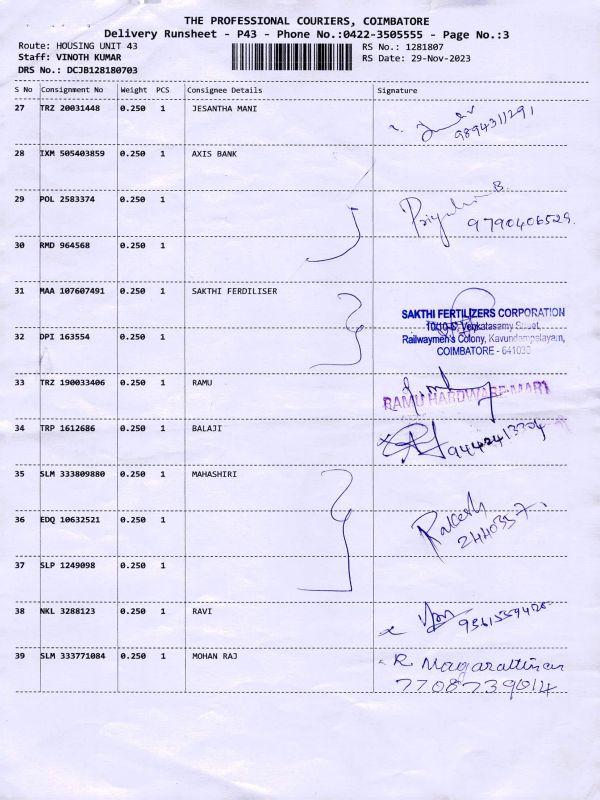 THE PROFESSIONAL COURIERS, COIMBATORE
Delivery Runsheet - P43 - Phone No.:0422-3505555 - Page No.:3
Route: HOUSING UNIT 43 RS No.: 1281807
Staff: VINOTH KUMAR RS Date: 29-Nov-2023
DRS No.: DCJB128180703
S No Consignment No Weight PCS Consignee Details Signature
27 TRZ 20031448 0.250 1 JESANTHA MANI
9894311291
28 IXM 505403859 0.250 1 AXIS BANK
29 POL 2583374 0.250 1
B.
9790406529.
30 RMD 964568 0.250 1
31 MAA 107607491 0.250 1 SAKTHI FERDILISER
SAKTHI FERTILIZERS CORPORATION
10/10-B, Venkatasamy Street,
32 DPI 163554 0.250 1
Railwaymen's Colony, Kavundampalayam,
COIMBATORE - 641030
33 TRZ 190033406 0.250 1 RAMU
RAMU HARDWARE MART
34 TRP 1612686 0.250 1 BALAJI
35 SLM 333809880 0.250 1 MAHASHIRI
36 EDQ 10632521 0.250 1
Rakesh
2440357.
37 SLP 1249098 0.250 1
38 NKL 3288123 0.250 1 RAVI
39 SLM 333771084 0.250 1 MOHAN RAJ
R
7708739014